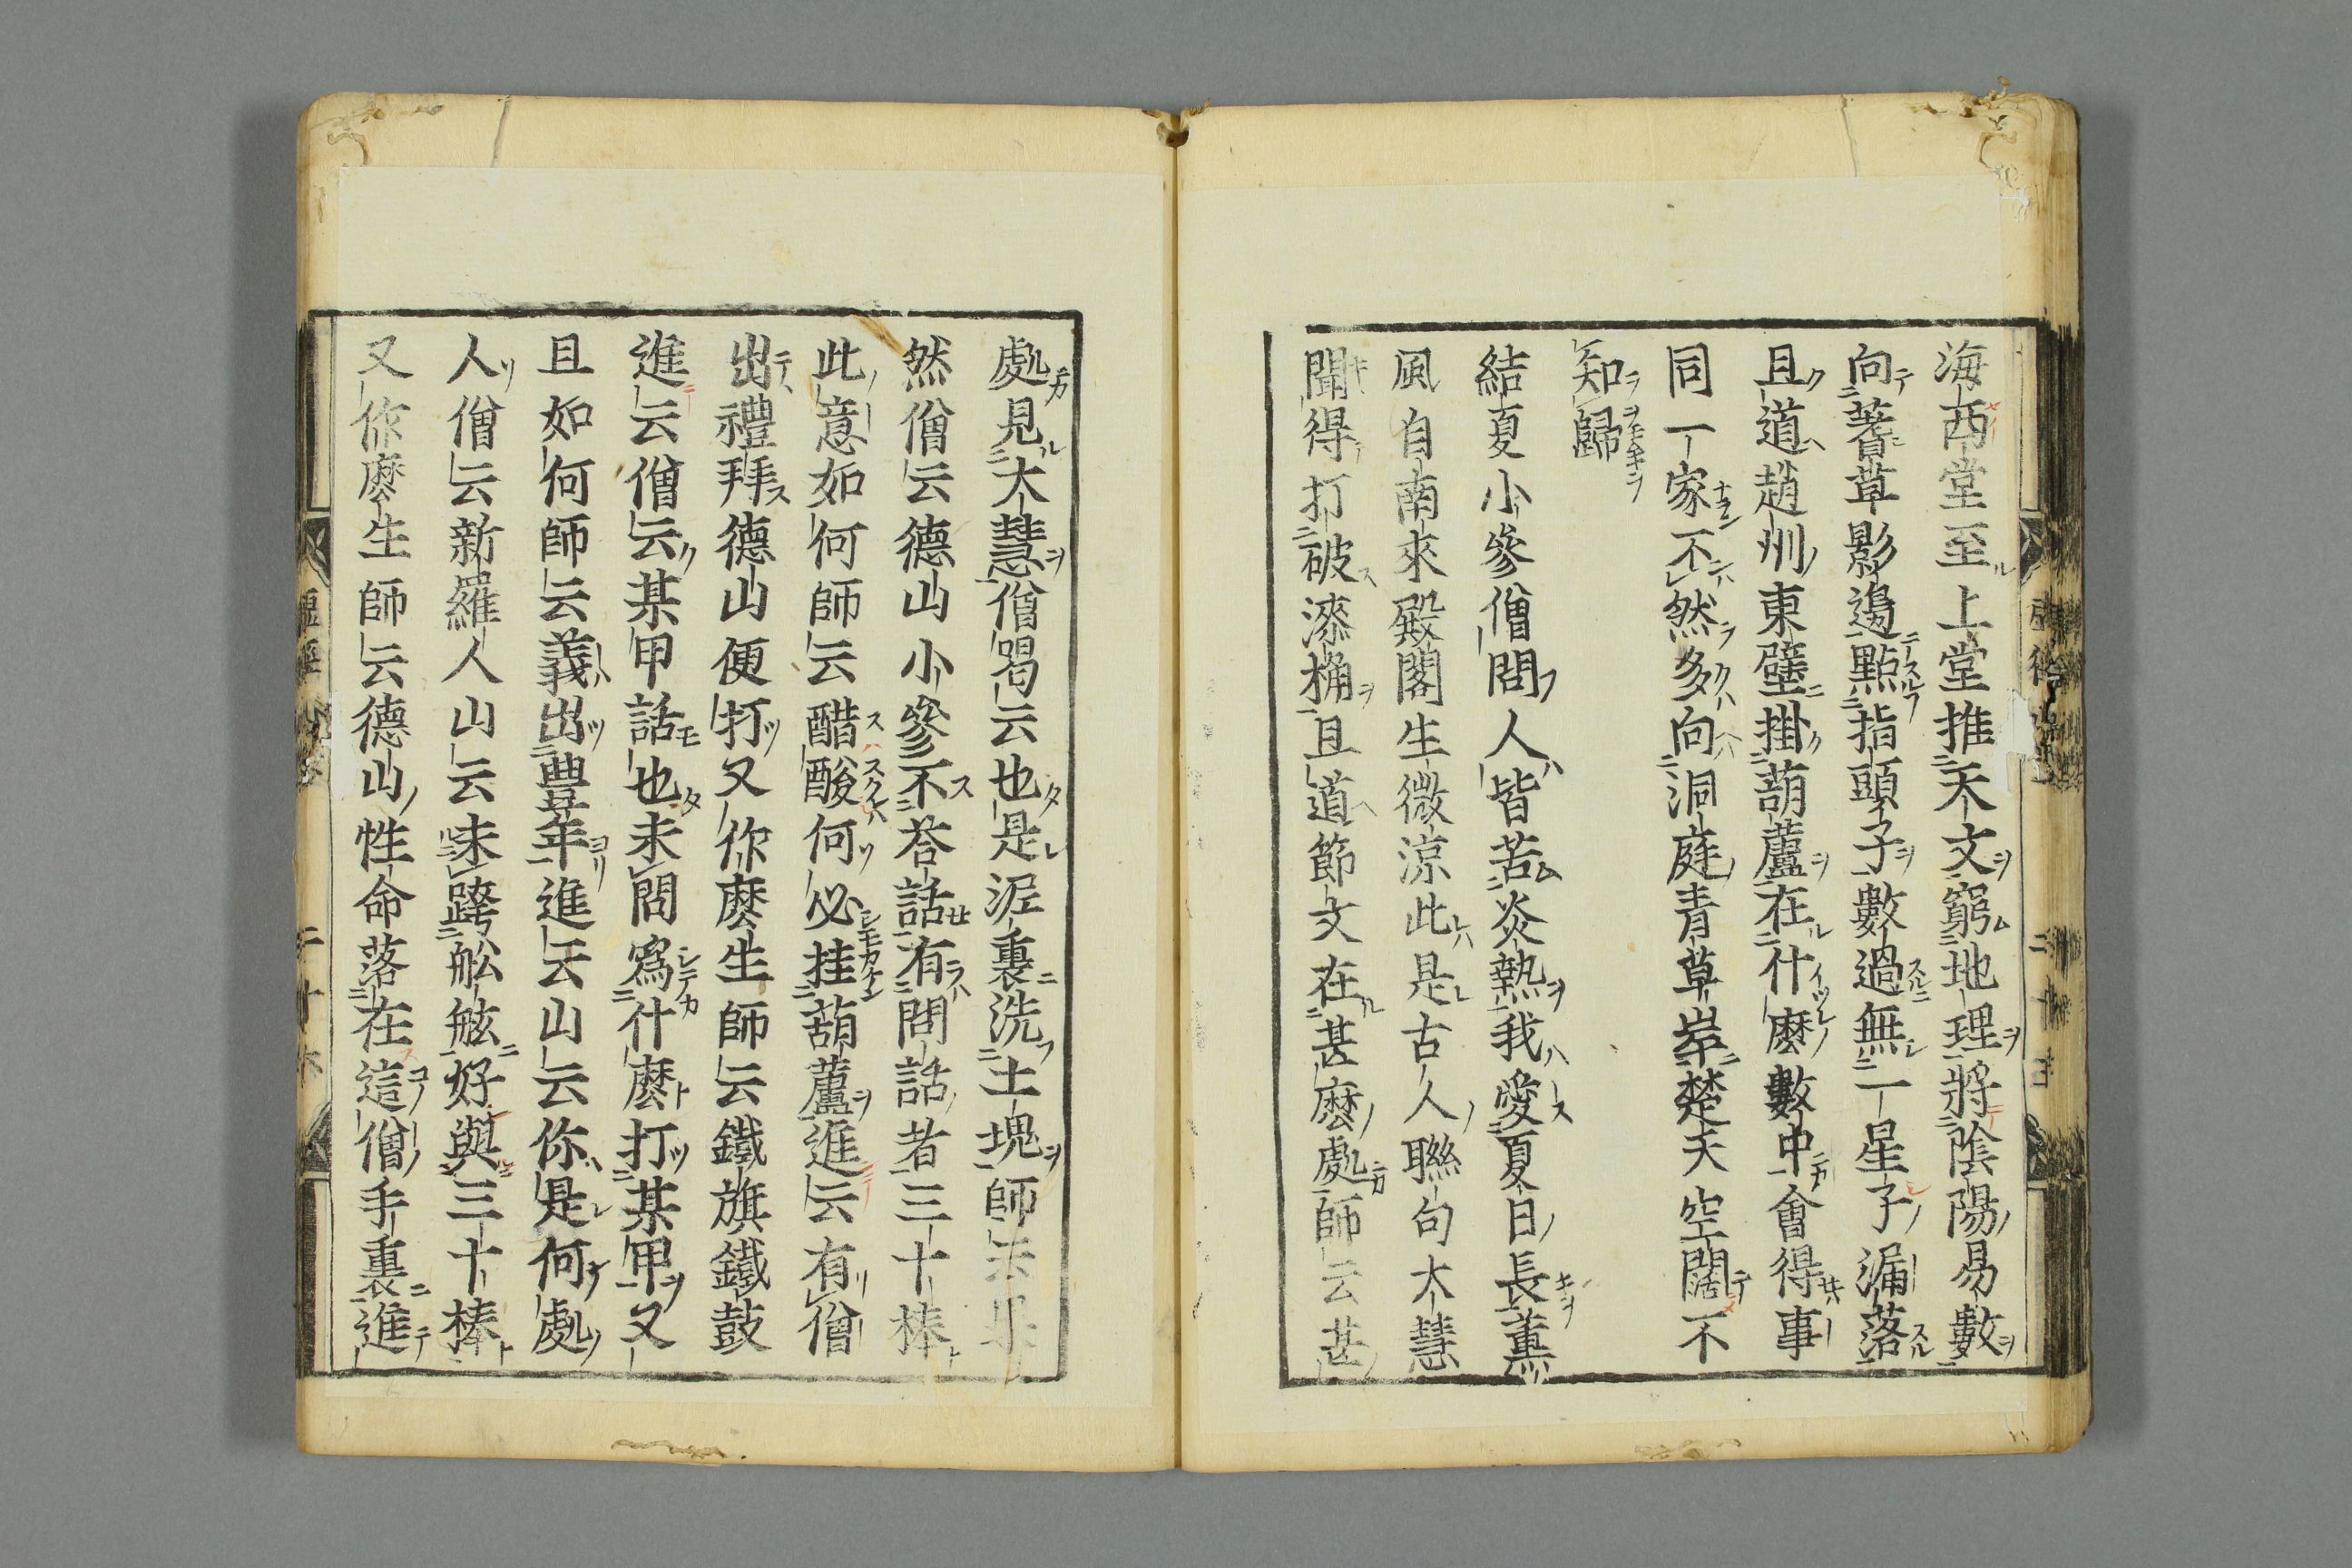 海西堂至上堂推天文窮地理將陰陽易數
向蓍草影邊點指頭子數過無一星子漏落
且道趙州東壁掛葫蘆在什麼數中會得事
同一家不然多向洞庭青草岸楚天空闊不
知歸
結夏小參僧問人皆苦炎熱我愛夏日長薰
風自南來殿閣生微涼此是古人聯句大慧
聞得打破漆桶且道節文在甚麼處師云甚
處見大慧僧喝云也是泥裏洗土塊師云果
然僧云德山小參不荅話有問話者三十棒
此意如何師云醋酸何必挂葫蘆進云有僧
出禮拜德山便打又你麼生師云鐵旗鐵鼓
進云僧云某甲話也未問爲什麼打某甲又
且如何師云義出豊年進云山云你是何處
人僧云新羅人山云未跨舩舷好與三十棒
又你麼生師云德山性命落在這僧手裏進
二十六